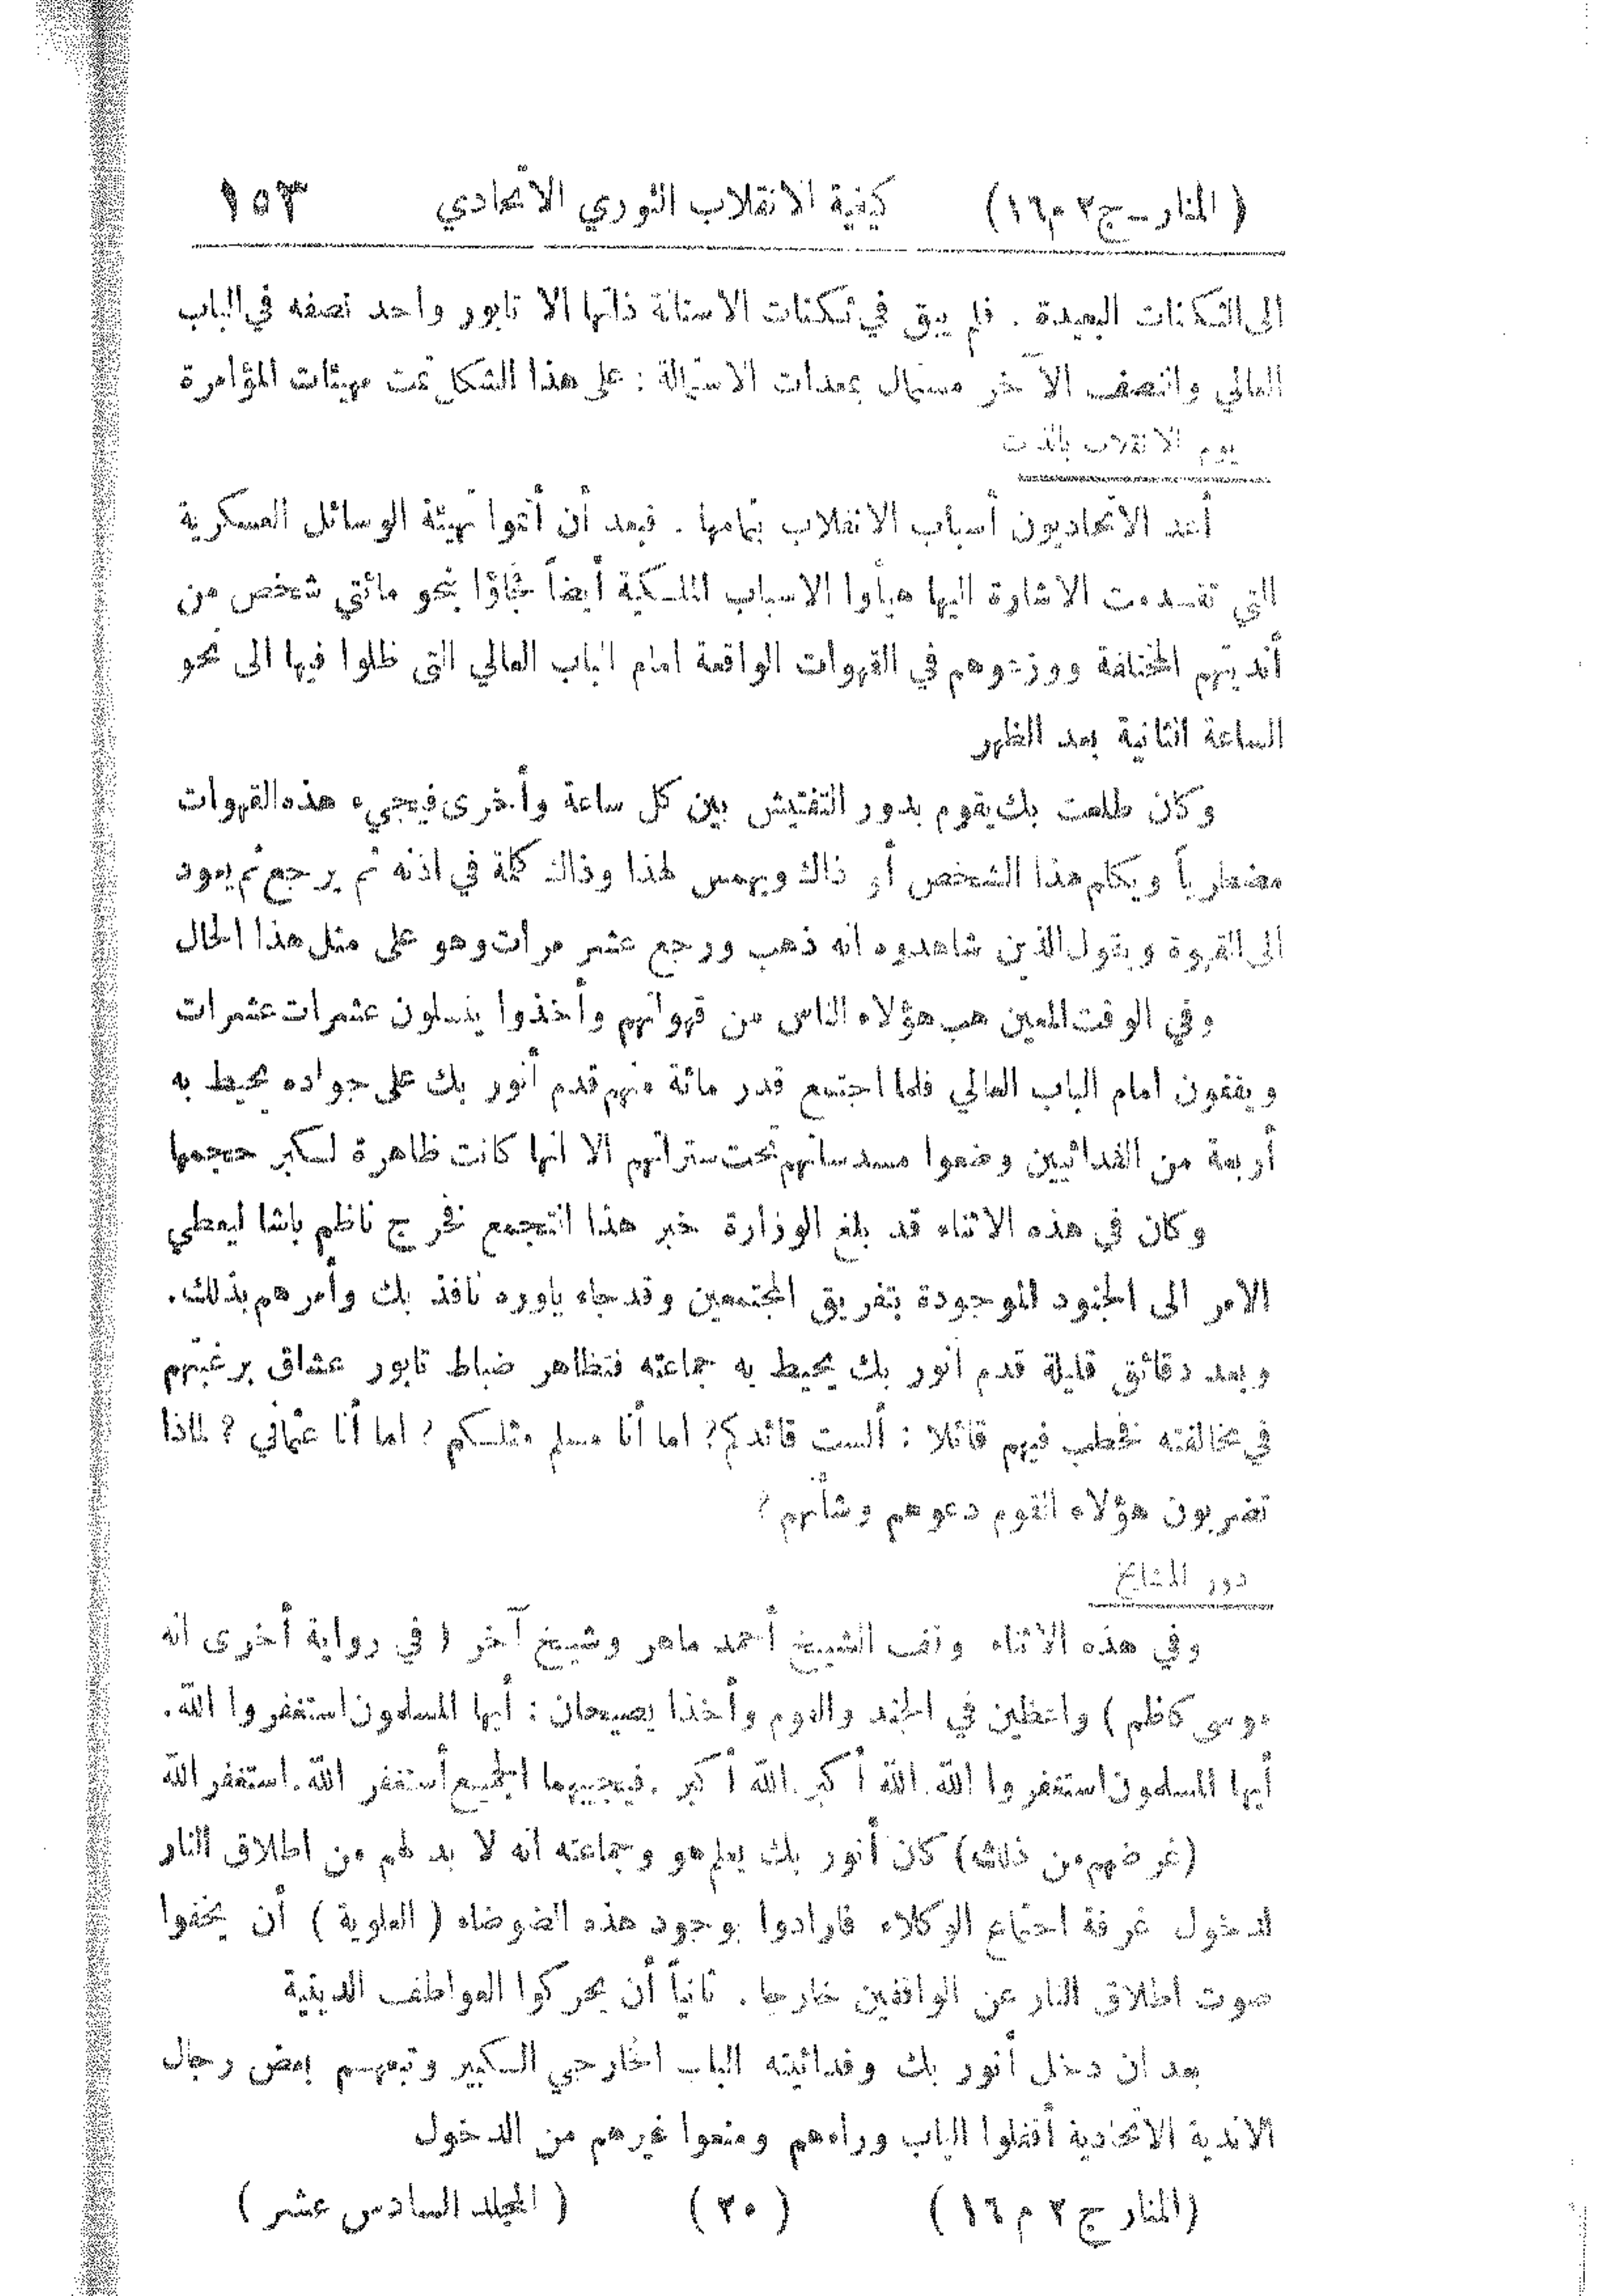 ( المنار ـ ج ٢ م ١٦ ) كيفية الانقلاب الثوري الاتحادي ١٥٣
الى الثكنات البعيدة . فلم يبق في ثكنات الاستانة ذاتها الا تابور واحد نصفه في الباب
العالي والنصف الآخر مستمال بمعدات الاستمالة : على هذا الشكل تمت مهيئات المؤامرة
يوم الانقلاب بالذات
أعد الاتحاديون أسباب الانقلاب بتمامها . فبعد أن أتموا تهيئة الوسائل العسكرية
التي تقدمت الاشارة اليها هيأوا الاسباب الملكية أيضاً فجاؤا بنحو مائتي شخص من
أنديتهم المختلفة ووزعوهم في القهوات الواقعة امام الباب العالي التى ظلوا فيها الى نحو
الساعة الثانية بعد الظهر
وكان طلعت بك يقوم بدور التفتيش بين كل ساعة وأخرى فيجيء هذه القهوات
مضطرباً ويكلم هذا الشخص أو ذاك ويهمس لهذا وذاك كلمة في اذنه ثم يرجع ثم يعود
الى القهوة ويقول الذين شاهدوه انه ذهب ورجع عشر مرات وهو على مثل هذا الحال
وفي الوقت المعين هب هؤلاء الناس من قهواتهم وأخذوا ينسلون عشرات عشرات
ويقفون امام الباب العالي فلما اجتمع قدر مائة منهم قدم أنور بك على جواده يحيط به
أربعة من الفدائيين وضعوا مسدساتهم تحت ستراتهم الا انها كانت ظاهرة لكبر حجمها
وكان في هذه الاثناء قد بلغ الوزارة خبر هذا التجمع فخرج ناظم باشا ليعطي
الامر الى الجنود الموجودة بتفريق المجتمعين وقد جاء ياوره نافذ بك وأمرهم بذلك.
وبعد دقائق قليلة قدم أنور بك يحيط به جماعته فتظاهر ضباط تابور عشاق برغبتهم
في مخالفته فخطب فيهم قائلا : ألست قائدكم ؟ اما أنا مسلم مثلكم ؟ اما أنا عثماني ؟ لماذا
تضربون هؤلاء القوم دعوهم وشأنهم ؟
دور المشايخ
وفي هذه الاثناء وقف الشيخ أحمد ماهر وشيخ آخر ( في رواية أخرى انه
موسى كاظم ) واعظين في الجند والقوم وأخذا يصيحان : أيها المسلمون استغفروا الله.
أيها المسلمون استغفروا الله. الله أكبر. الله أكبر . فيجيبهما الجميع أستغفر الله. استغفر الله
(غرضهم من ذلك) كان أنور بك يعلم هو وجماعته انه لا بد لهم من اطلاق النار
لدخول غرفة اجتماع الوكلاء فارادوا بوجود هذه الضوضاء ( العلوية ) أن يخفوا
صوت اطلاق النار عن الواقفين خارجا . ثانياً أن يحركوا العواطف الدينية
بعد ان دخل أنور بك وفدائيته الباب الخارجي الكبير وتبعهم بعض رجال
الاندية الاتحادية أقفلوا الباب وراءهم ومنعوا غيرهم من الدخول
(المنار ج ٢ م ١٦ ) ( ٢٠ ) ( المجلد السادس عشر )